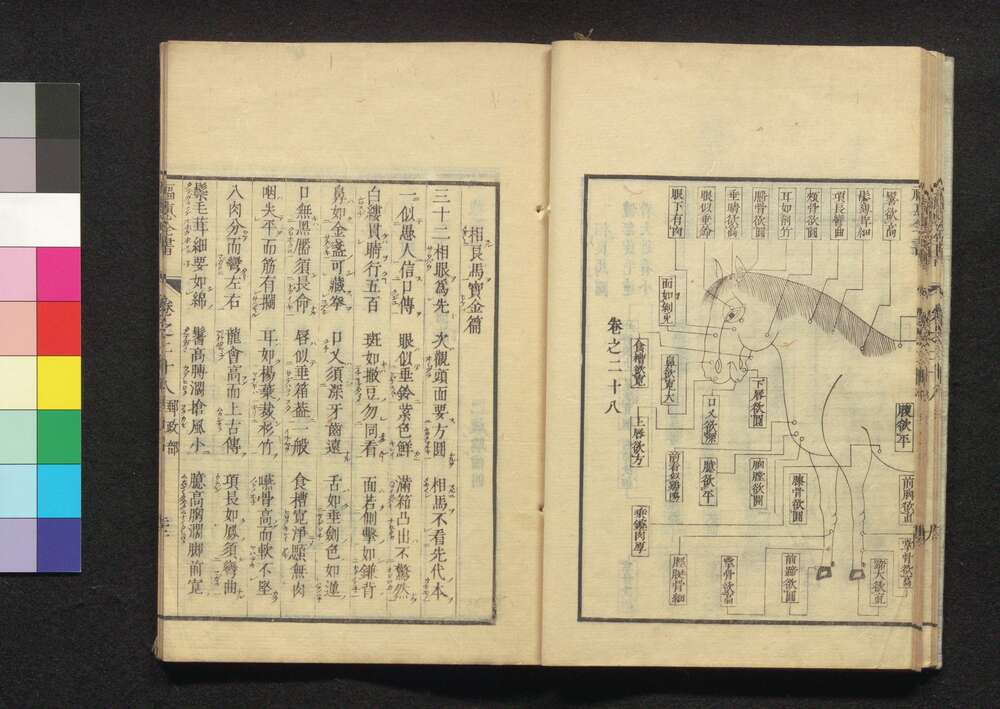 鬐欲高
鬃鬣欲細
項長欲曲
頰骨欲圓
耳如削竹
膝骨欲圓
垂睛欲高
眼似垂鈴
眼下有肉
面如剝兎
食槽欲寛
鼻欲寛大
上唇欲方
口叉欲深
下唇欲圓
臆欲平
胸膛欲闊
膝骨欲圓
腹欲平
前看如鷄鳴
垂鐙肉厚
前蹄欲圓
蹄大欲寛
卷之二十八
相良馬寶金篇
三十二相眼爲先 次觀頭面要方圓 相馬不看先代本
一似愚人信口傳 眼似垂鈴紫色鮮 滿箱凸出不驚然
白縷貫睛行五百 斑如撒豆勿同看 面若側擊如鎌背
鼻如金盞可藏拳 口叉須深牙齒遠 舌如垂劍色如蓮
口無黑黶須長命 唇似垂箱蓋一般 食槽寛淨顋無肉
咽失平而筋有攔 耳如楊葉裁杉竹 嚥骨高而軟不堅
八肉分而彎左右 龍會高而上古傳 項長如鳳須彎曲
鬃毛茸細要如綿 鬐高膊濶搶風小 臆高胸濶脚前寛
卷之二十八 郵政部